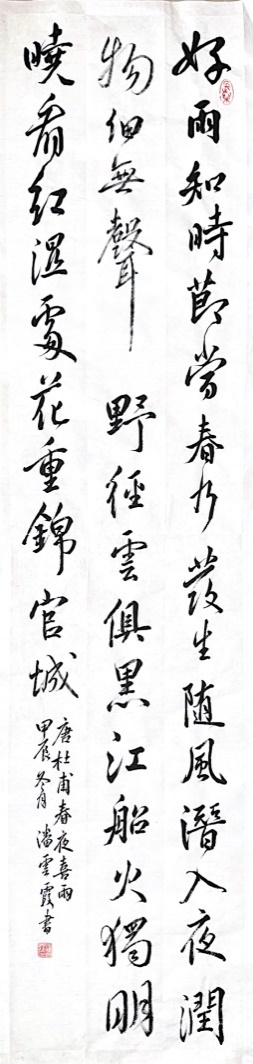 好雨知時節當春乃發生随風潛入夜潤
物细無聲 野徑雲俱黑江船火獨明
曉看红濕處花重錦官城
唐杜甫春夜喜雨
甲辰冬月 潘雲霞書